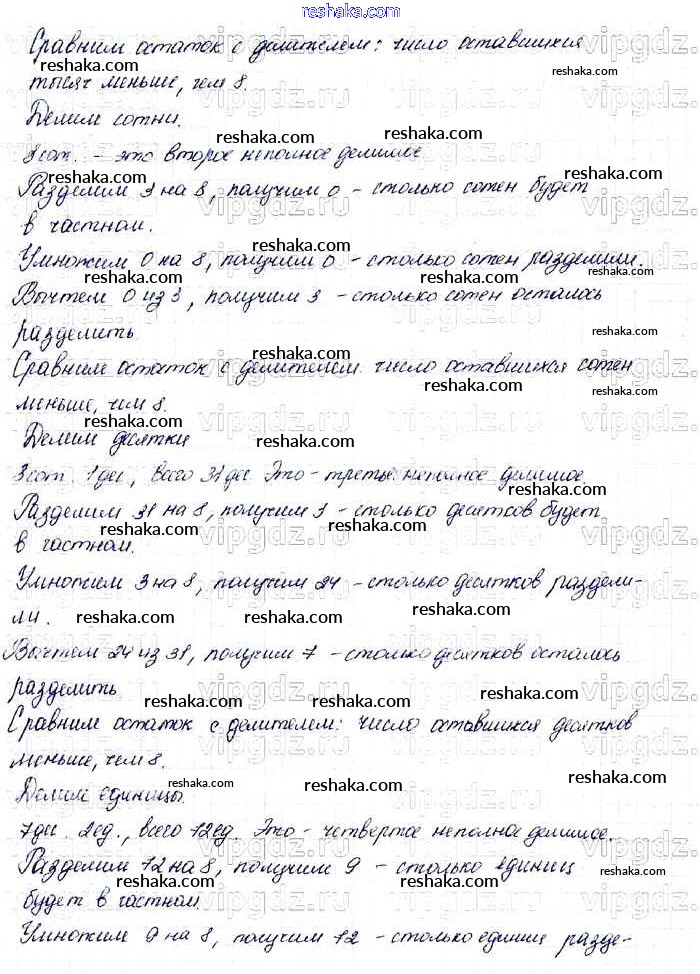 reshaka.com
Сравним остаток с делителем: число оставшихся
тысяч меньше, чем 8.
Делим сотни.
3 сот. – это второе неполное делимое
Разделим 3 на 8, получим 0 – столько сотен будет
в частном.
Умножим 0 на 8, получим 0 – столько сотен разделили.
Вычтем 0 из 3, получим 3 – столько сотен осталось
разделить
Сравним остаток с делителем число оставшихся сотен
меньше, чем 8.
Делим десятки
3 сот. 1 дес., всего 31 дес. Это – третье неполное делимое.
Разделим 31 на 8, получим 3 – столько десятков будет
в частном.
Умножим 3 на 8, получим 24 – столько десятков раздели-
ли.
Вычтем 24 из 31, получим 7 – столько десятков осталось
разделить
Сравним остаток с делителем: число оставшихся десятков
меньше, чем 8.
Делим единицы.
7 дес. 2 ед., всего 12 ед. Это – четвертое неполное делимое.
Разделим 12 на 8, получим 9 – столько единиц
будет в частном.
Умножим 9 на 8, получим 12 – столько единиц разде-